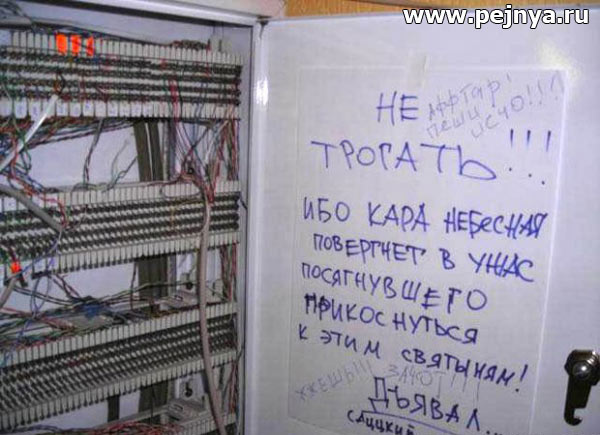 www.pejnya.ru
НЕ
Аффтар!
пеши
исчо!!!
ТРОГАТЬ!!!
ИБО КАРА НЕБЕСНАЯ
ПОВЕРГНЕТ В УЖАС
ПОСЯГНУВШЕГО
ПРИКОСНУТЬСЯ
К ЭТИМ СВЯТЫНЯМ!
ЖЖЕШЬ!!! ЗАЧОТ!!!
ДЪЯВАЛ...
САЦЦКИЙ